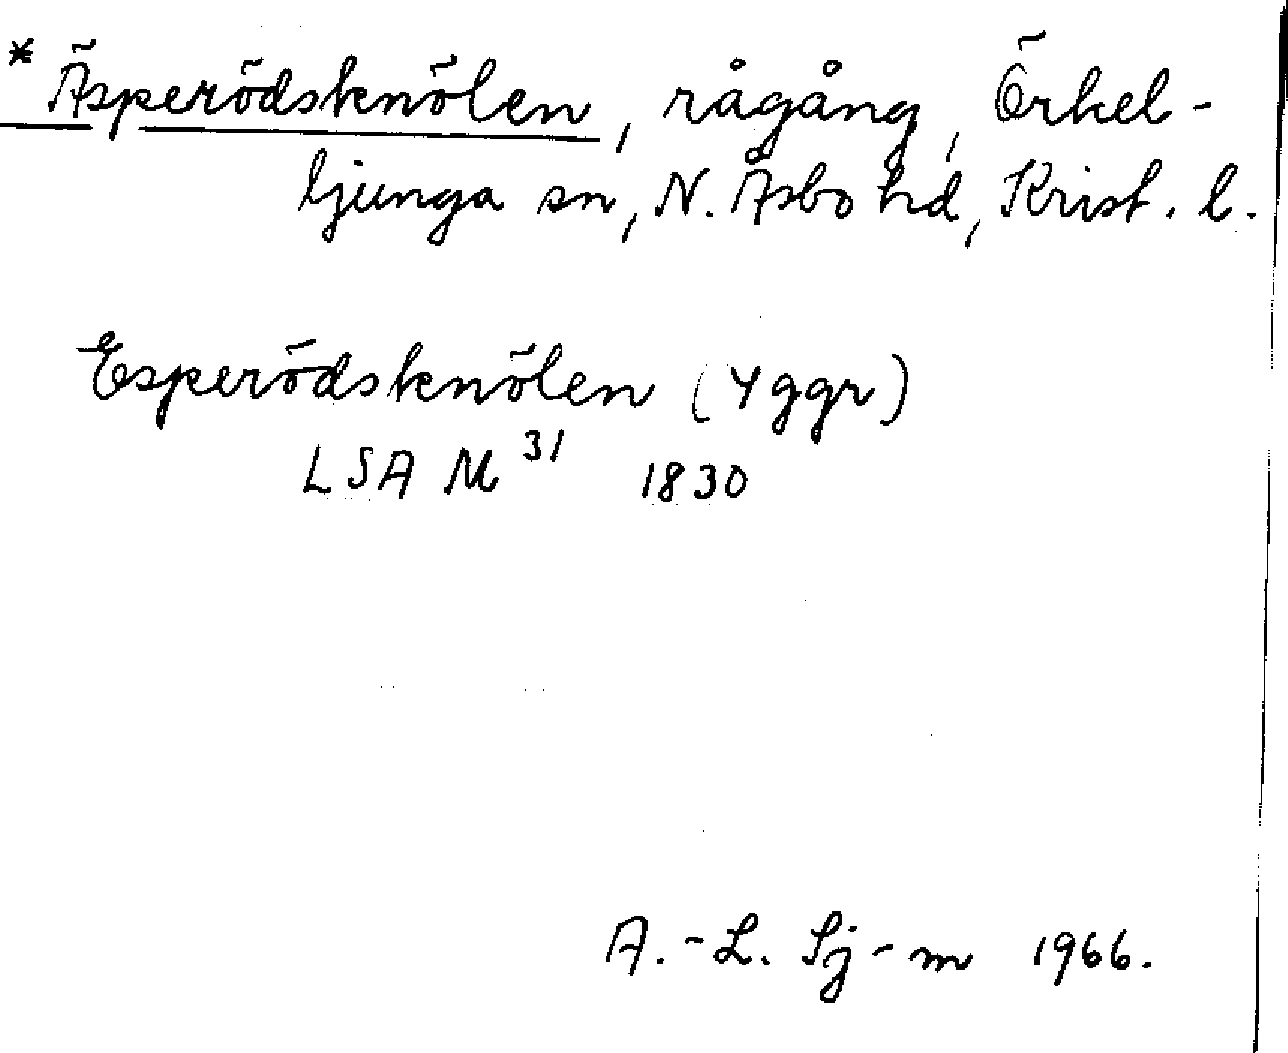 * Äsperödsknölen, rågång, Örkel-
ljunga sn, N. Åsbo hd, Krist. l.
Esperödsknölen (4 ggr)
LSA M 31 1830
A.-L. Sj-m 1966.